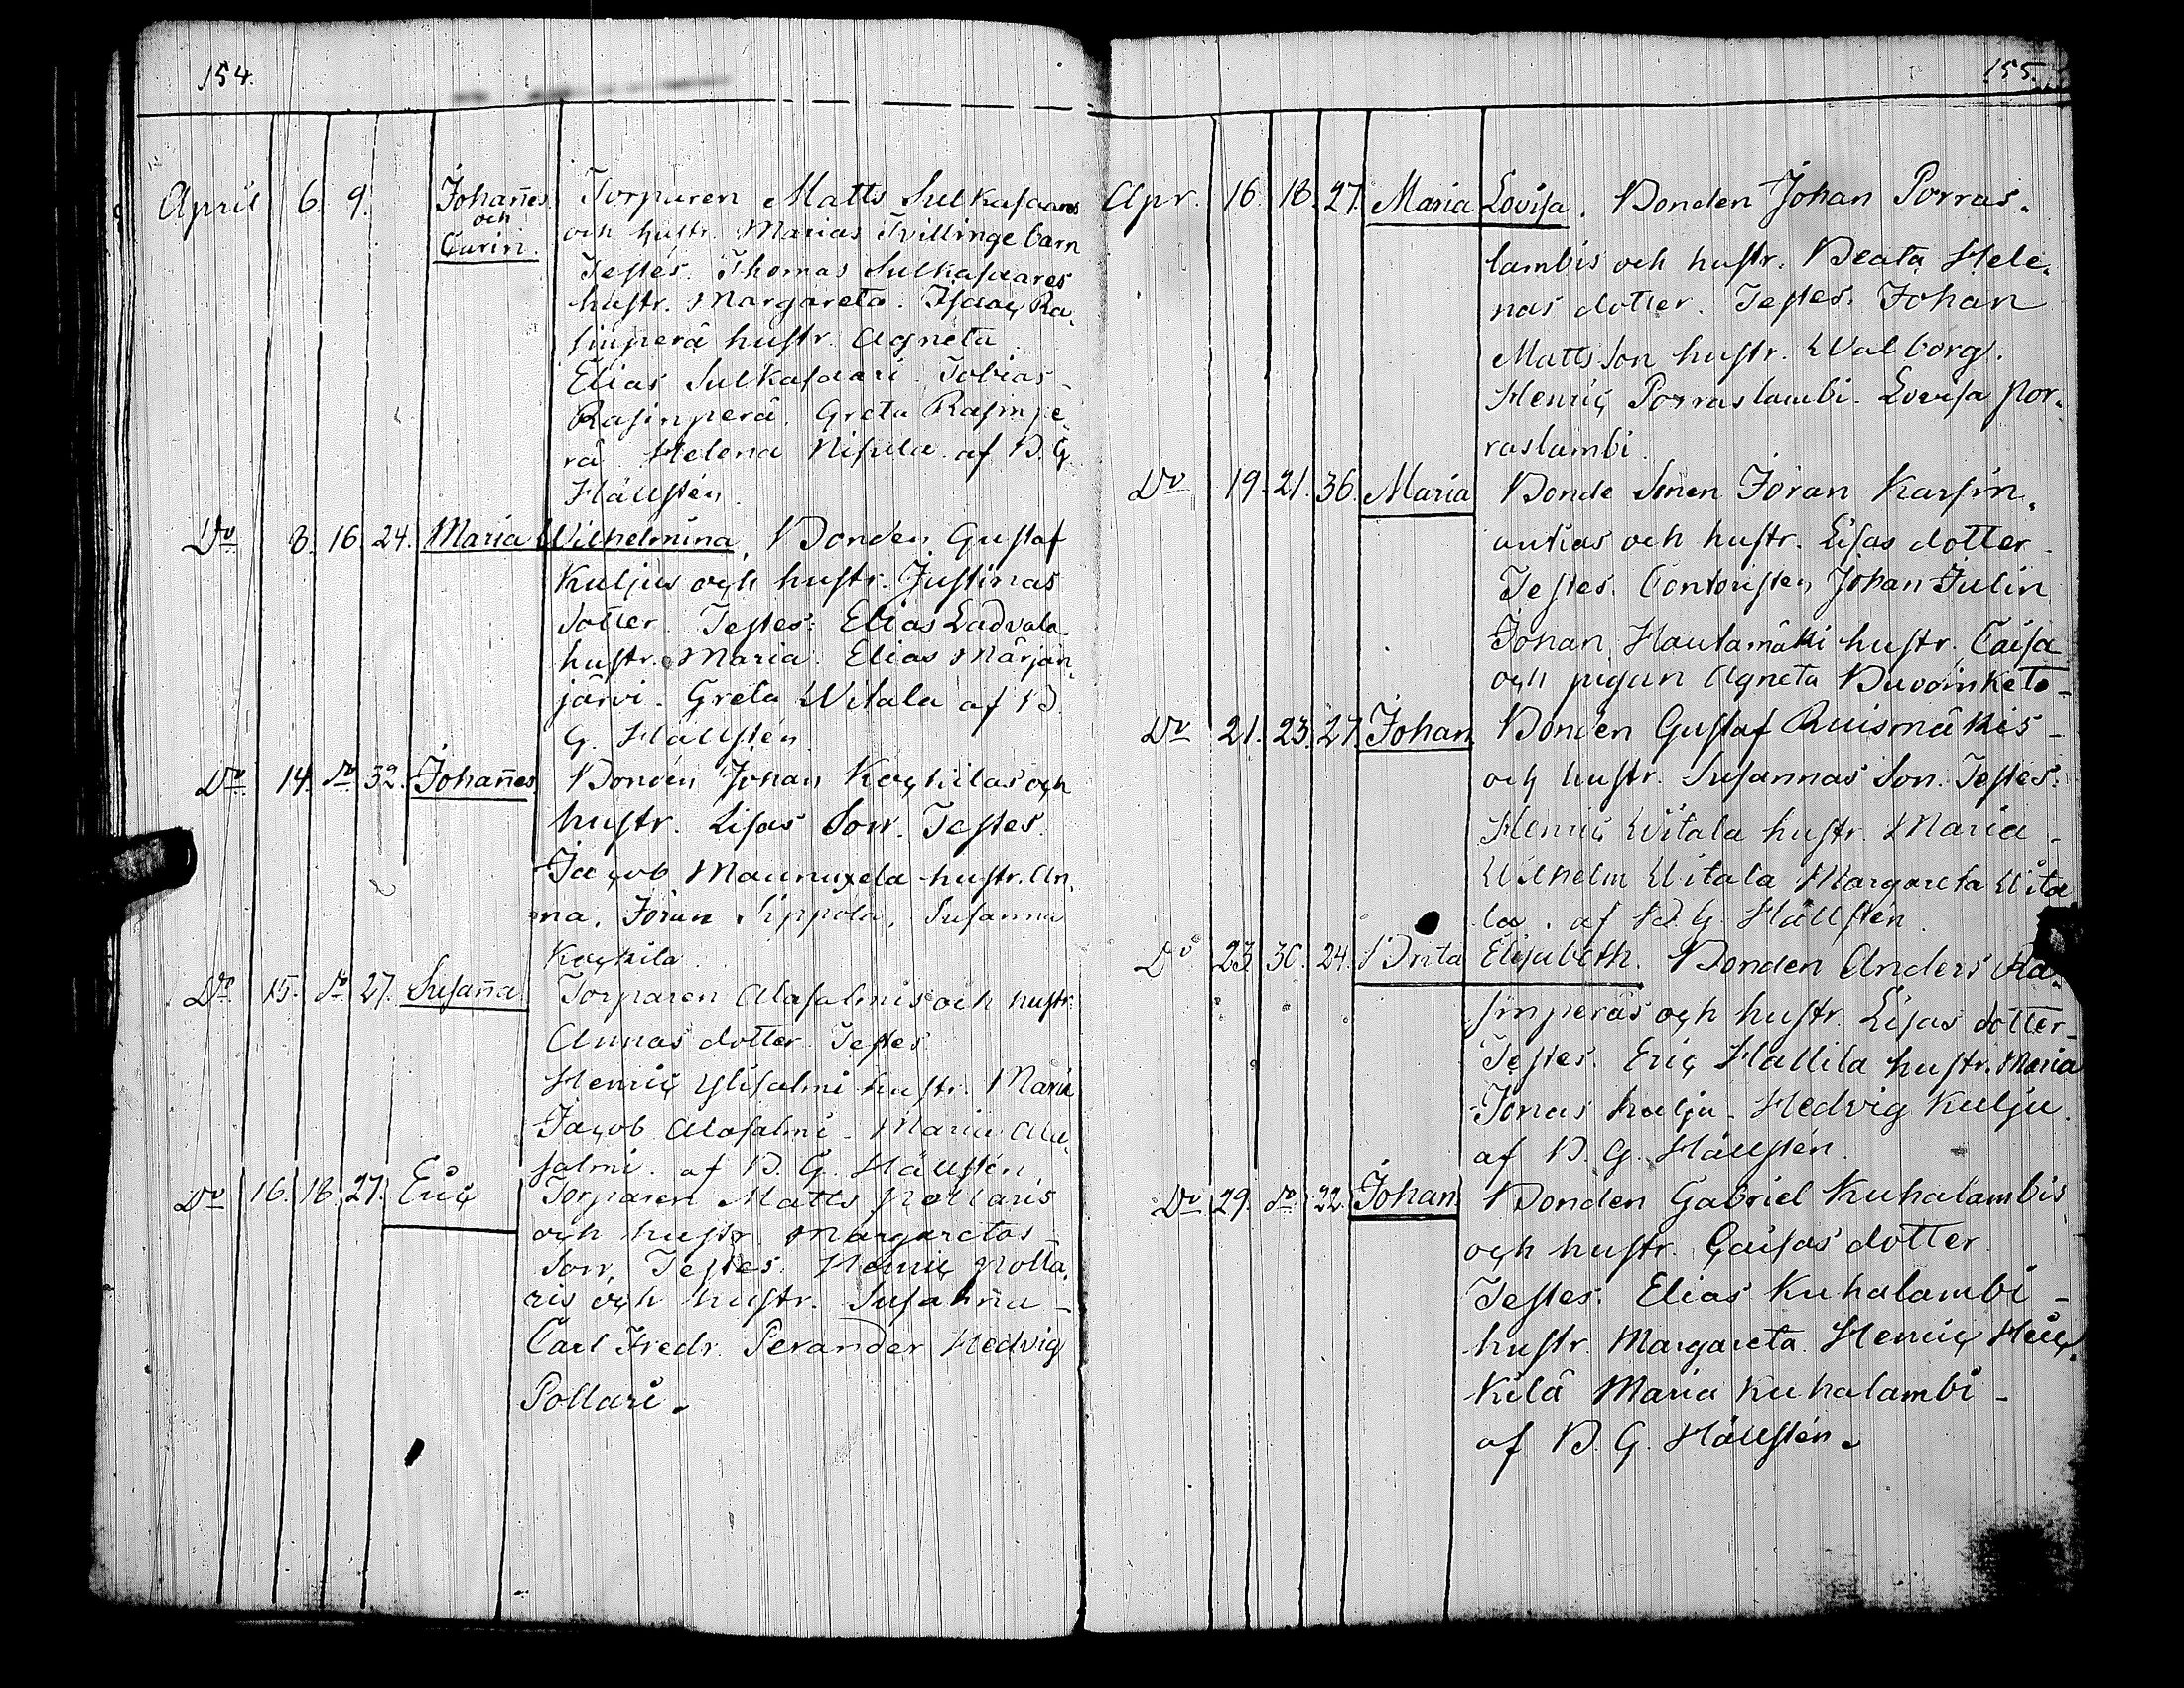 154.
April 6. 9. Johañes Torparen Matts Sulkasaares
och
Carin. och hustr. Marias Tvillinge barn
Testes. Thomas Sulkasaares
hustr. Margareta. Isaac Ra-
sinperä hustr. Agneta
Elias Sulkasaari. Tobias
Rasinperä. Greta Rasinpe-
rä Helena Nisula af B. G.
Hällstén.
Do 8. 16. 24. Maria Wilhelmina. Bonden Gustaf
Kuljus och hustr. Justinas
dotter. Testes: Elias Ladvala
hustr. Maria. Elias Märjän-
järvi. Greta Witala af B.
G. Hällstén
Do 14. do 32. Johañes Bonden Johan Kockilas och
hustr. Lisas Son. Testes.
Jacob Maunuxela hustr. An-
na. Jöran Sippola. Susanna
Kockila.
Do 15. do 27. Susaña Torparen Alasalmis och hustr.
Annas dotter. Testes
Henric Ylisalmi hustr. Maria
Jacob Alasalmi. Maria Ala-
salmi. af B. G. Hällstén
Do 16. 18. 27. Eric Torparen Matts Pollaris
och hustr. Margaretas
Son. Testes. Henric Polla-
ris och hustr. Susañna
Carl Fredr. Perander Hedvig
Pollari.
155.
Apr. 16. 18. 27. Maria Lovisa. Bonden Johan Porras-
lambis och hustr. Beata Hele-
nas dotter. Testes. Johan
Matts Son hustr. Walborg.
Henric Porraslambi. Lovisa Por-
raslambi.
Do 19. 21. 36. Maria Bonde Sonen Jöran Karsin-
autias och hustr. Lisas dotter.
Testes. Contoristen Johan Julin
Johan Hautamäki hustr. Caisa
och pigan Agneta
Do 21. 23. 27. Johan. Bonden Gustaf Ruismäkis
och hustr. Susannas Son. Testes.
Henric Witala hustr. Maria
Wilhelm Witala Margareta Wita
la. af B. G. Hällstén
Do 23 30. 24. Brita Elisabeth. Bonden Anders Ra-
sinperäs och hustr. Lisas dotter
Testes. Eric Hallila hustr. Maria
Jonas Kulju. Hedvig Kulju.
af B. G. Hällstén.
Do 29. do 22. Johan. Bonden Gabriel Kuhalambis
och hustr. Caisas dotter
Testes. Elias Kuhalambi
hustr. Margareta. Henric Heic-
kilä Maria Kuhalambi
af B. G. Hällstén.